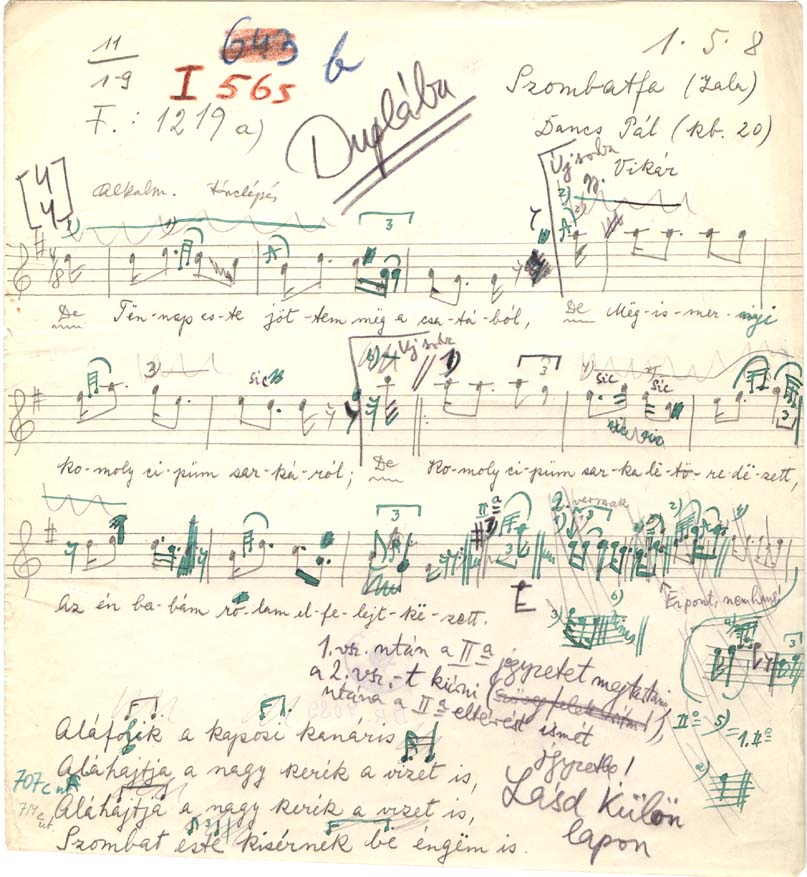 11
1-9
I 565
643 b
F. : 1219 a)
Duplába
1. 5. 8
Szombatfa (Zala)
Dancs Pál (kb. 20)
Vikár
Új sorba
4
4
Alkalm. tánclépés
De Tën-nap es-te jöt-tem mëg a csa-tá-ból, De Mëg-is-mer-nyi
Új sorba
3 sic sic sic
ko-moly ci-püm sar-ká-ról; De Ko-moly ci-püm sar-ka lë-tö-re-dë-zett,
II a
2. versszak
Az én ba-bám ró-lam el-fe-lejt-kë-zett.
Ez pont, nem
1. vsz. után a II a jegyzetet megtartani
a 2. vsz.-t kiírni
utána a II a eltérést ismét
jegyzetbe!
Lásd külön
lapon
II a 5) = 1. II a
Aláfolik a kaposi kanáris
Aláhajtja a nagy kerék a vizet is,
Aláhajtja a nagy kerék a vizet is,
Szombat este kisérnek be éngëm is.
707 c